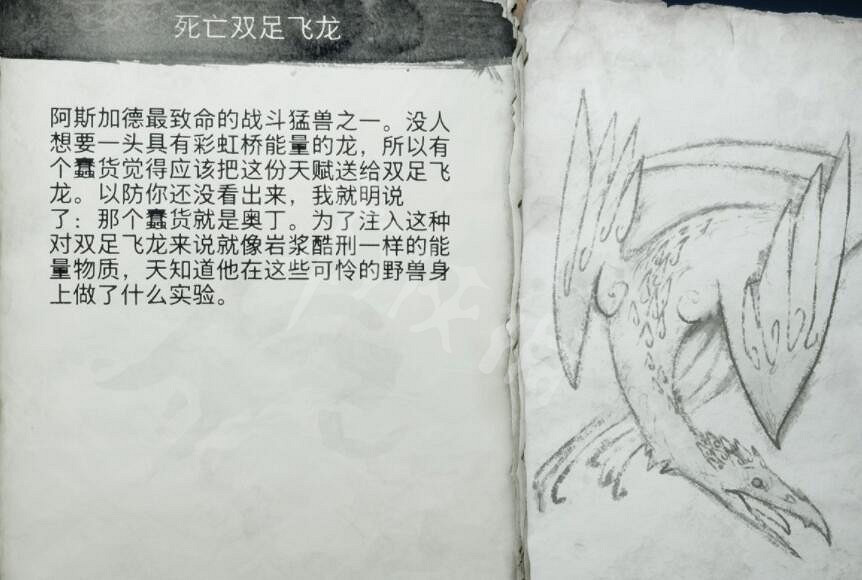 死亡双足飞龙
阿斯加德最致命的战斗猛兽之一。没人
想要一头具有彩虹桥能量的龙，所以有
个蠢货觉得应该把这份天赋送给双足飞
龙。以防你还没看出来，我就明说
了：那个蠢货就是奥丁。为了注入这种
对双足飞龙来说就像岩浆酷刑一样的能
量物质，天知道他在这些可怜的野兽身
上做了什么实验。